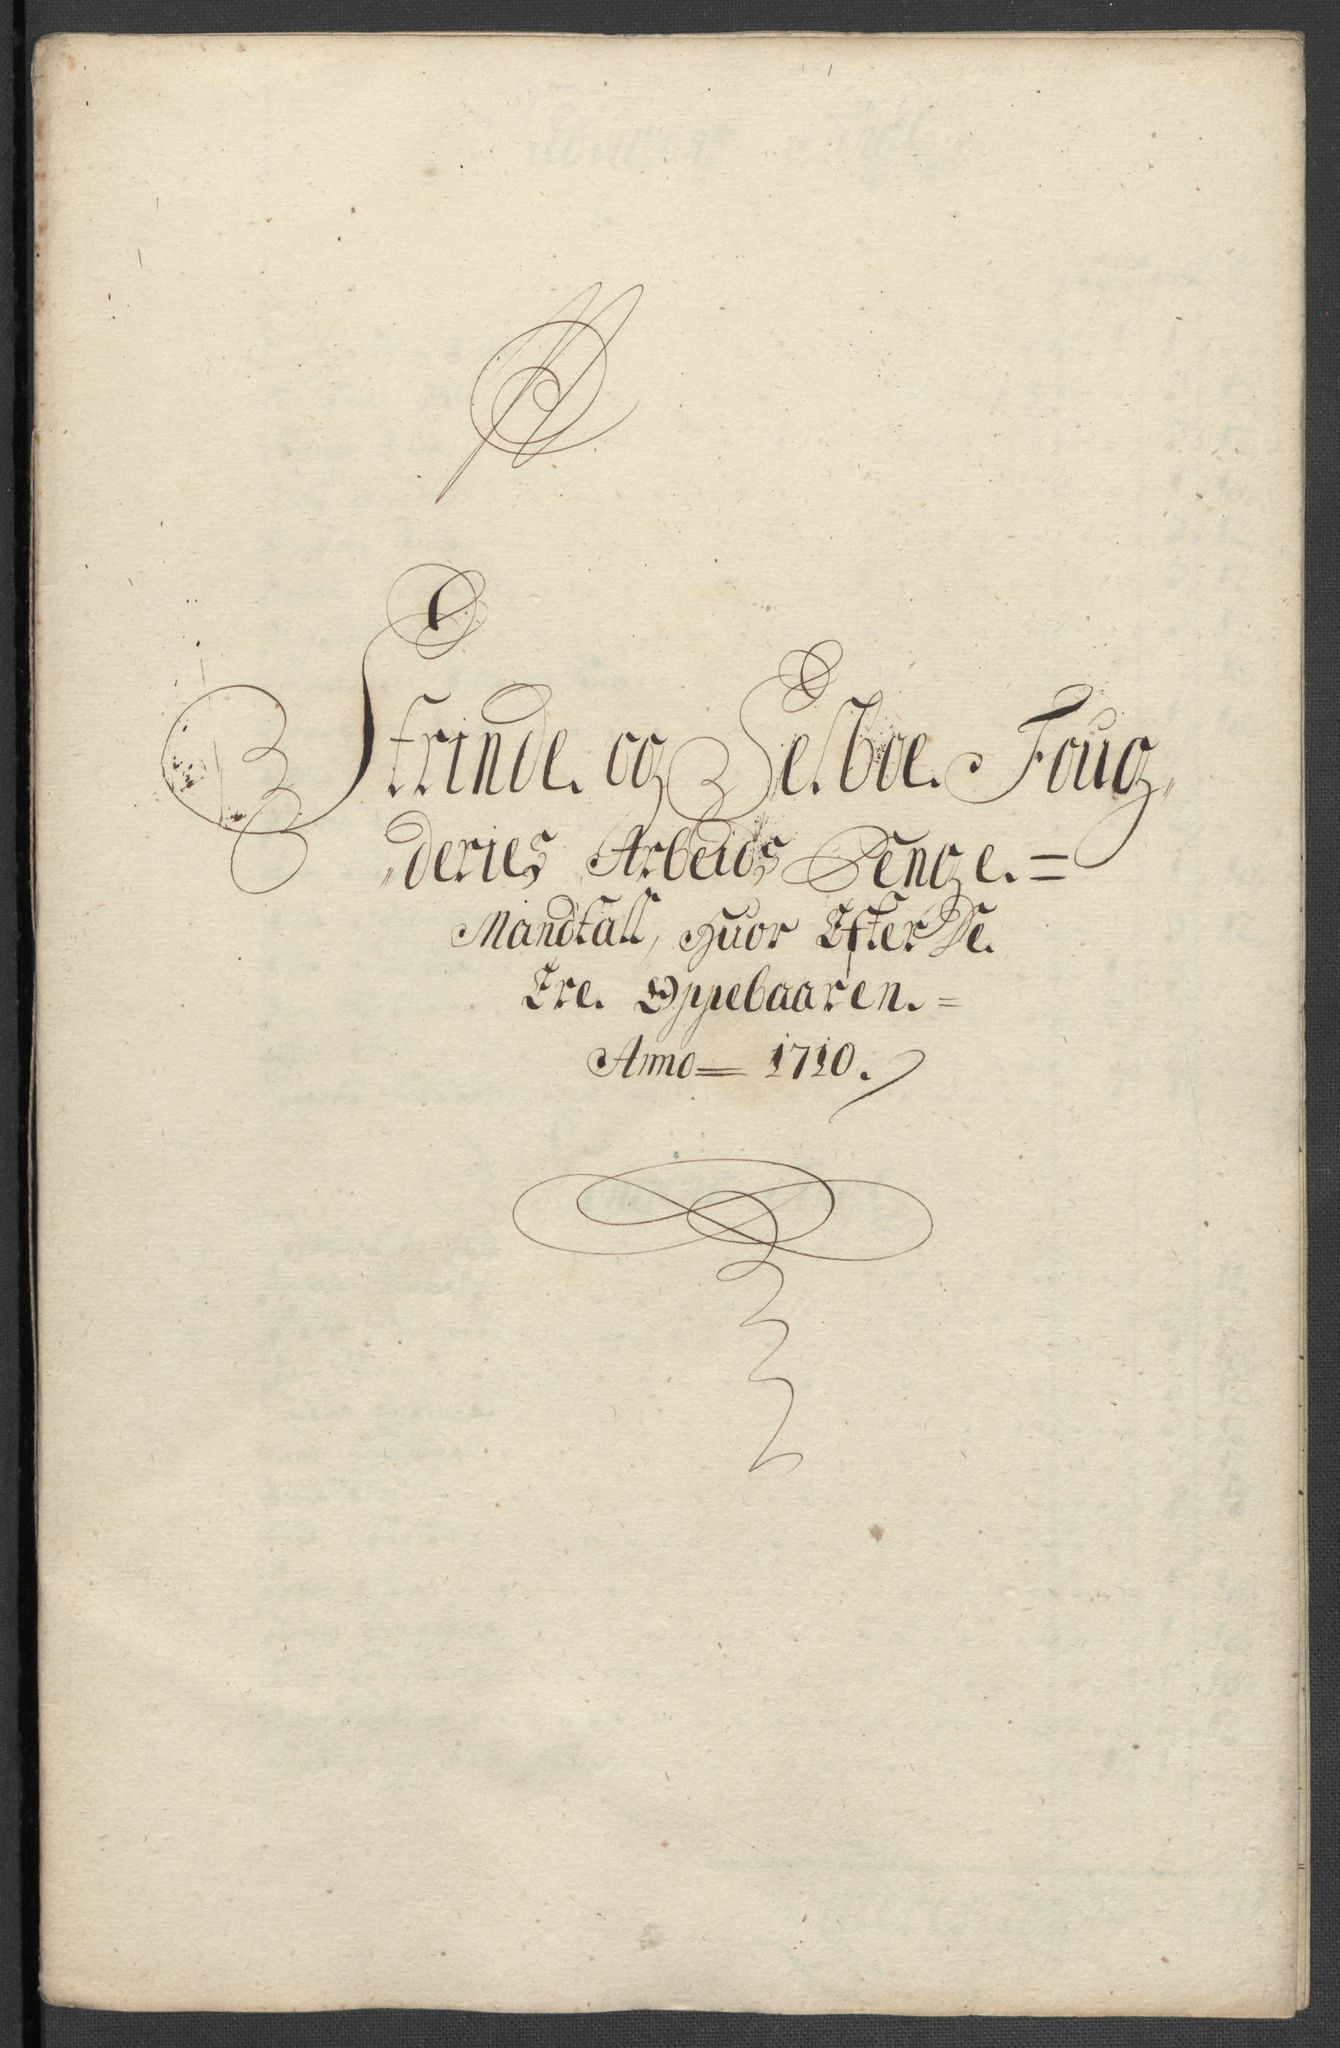 Strinde. og Selboe. Foug,
„deries Arbeids Penge. =
Mandtall, Huor Efter De.
Ere. Oppebaaren. =
Anno = 1710.